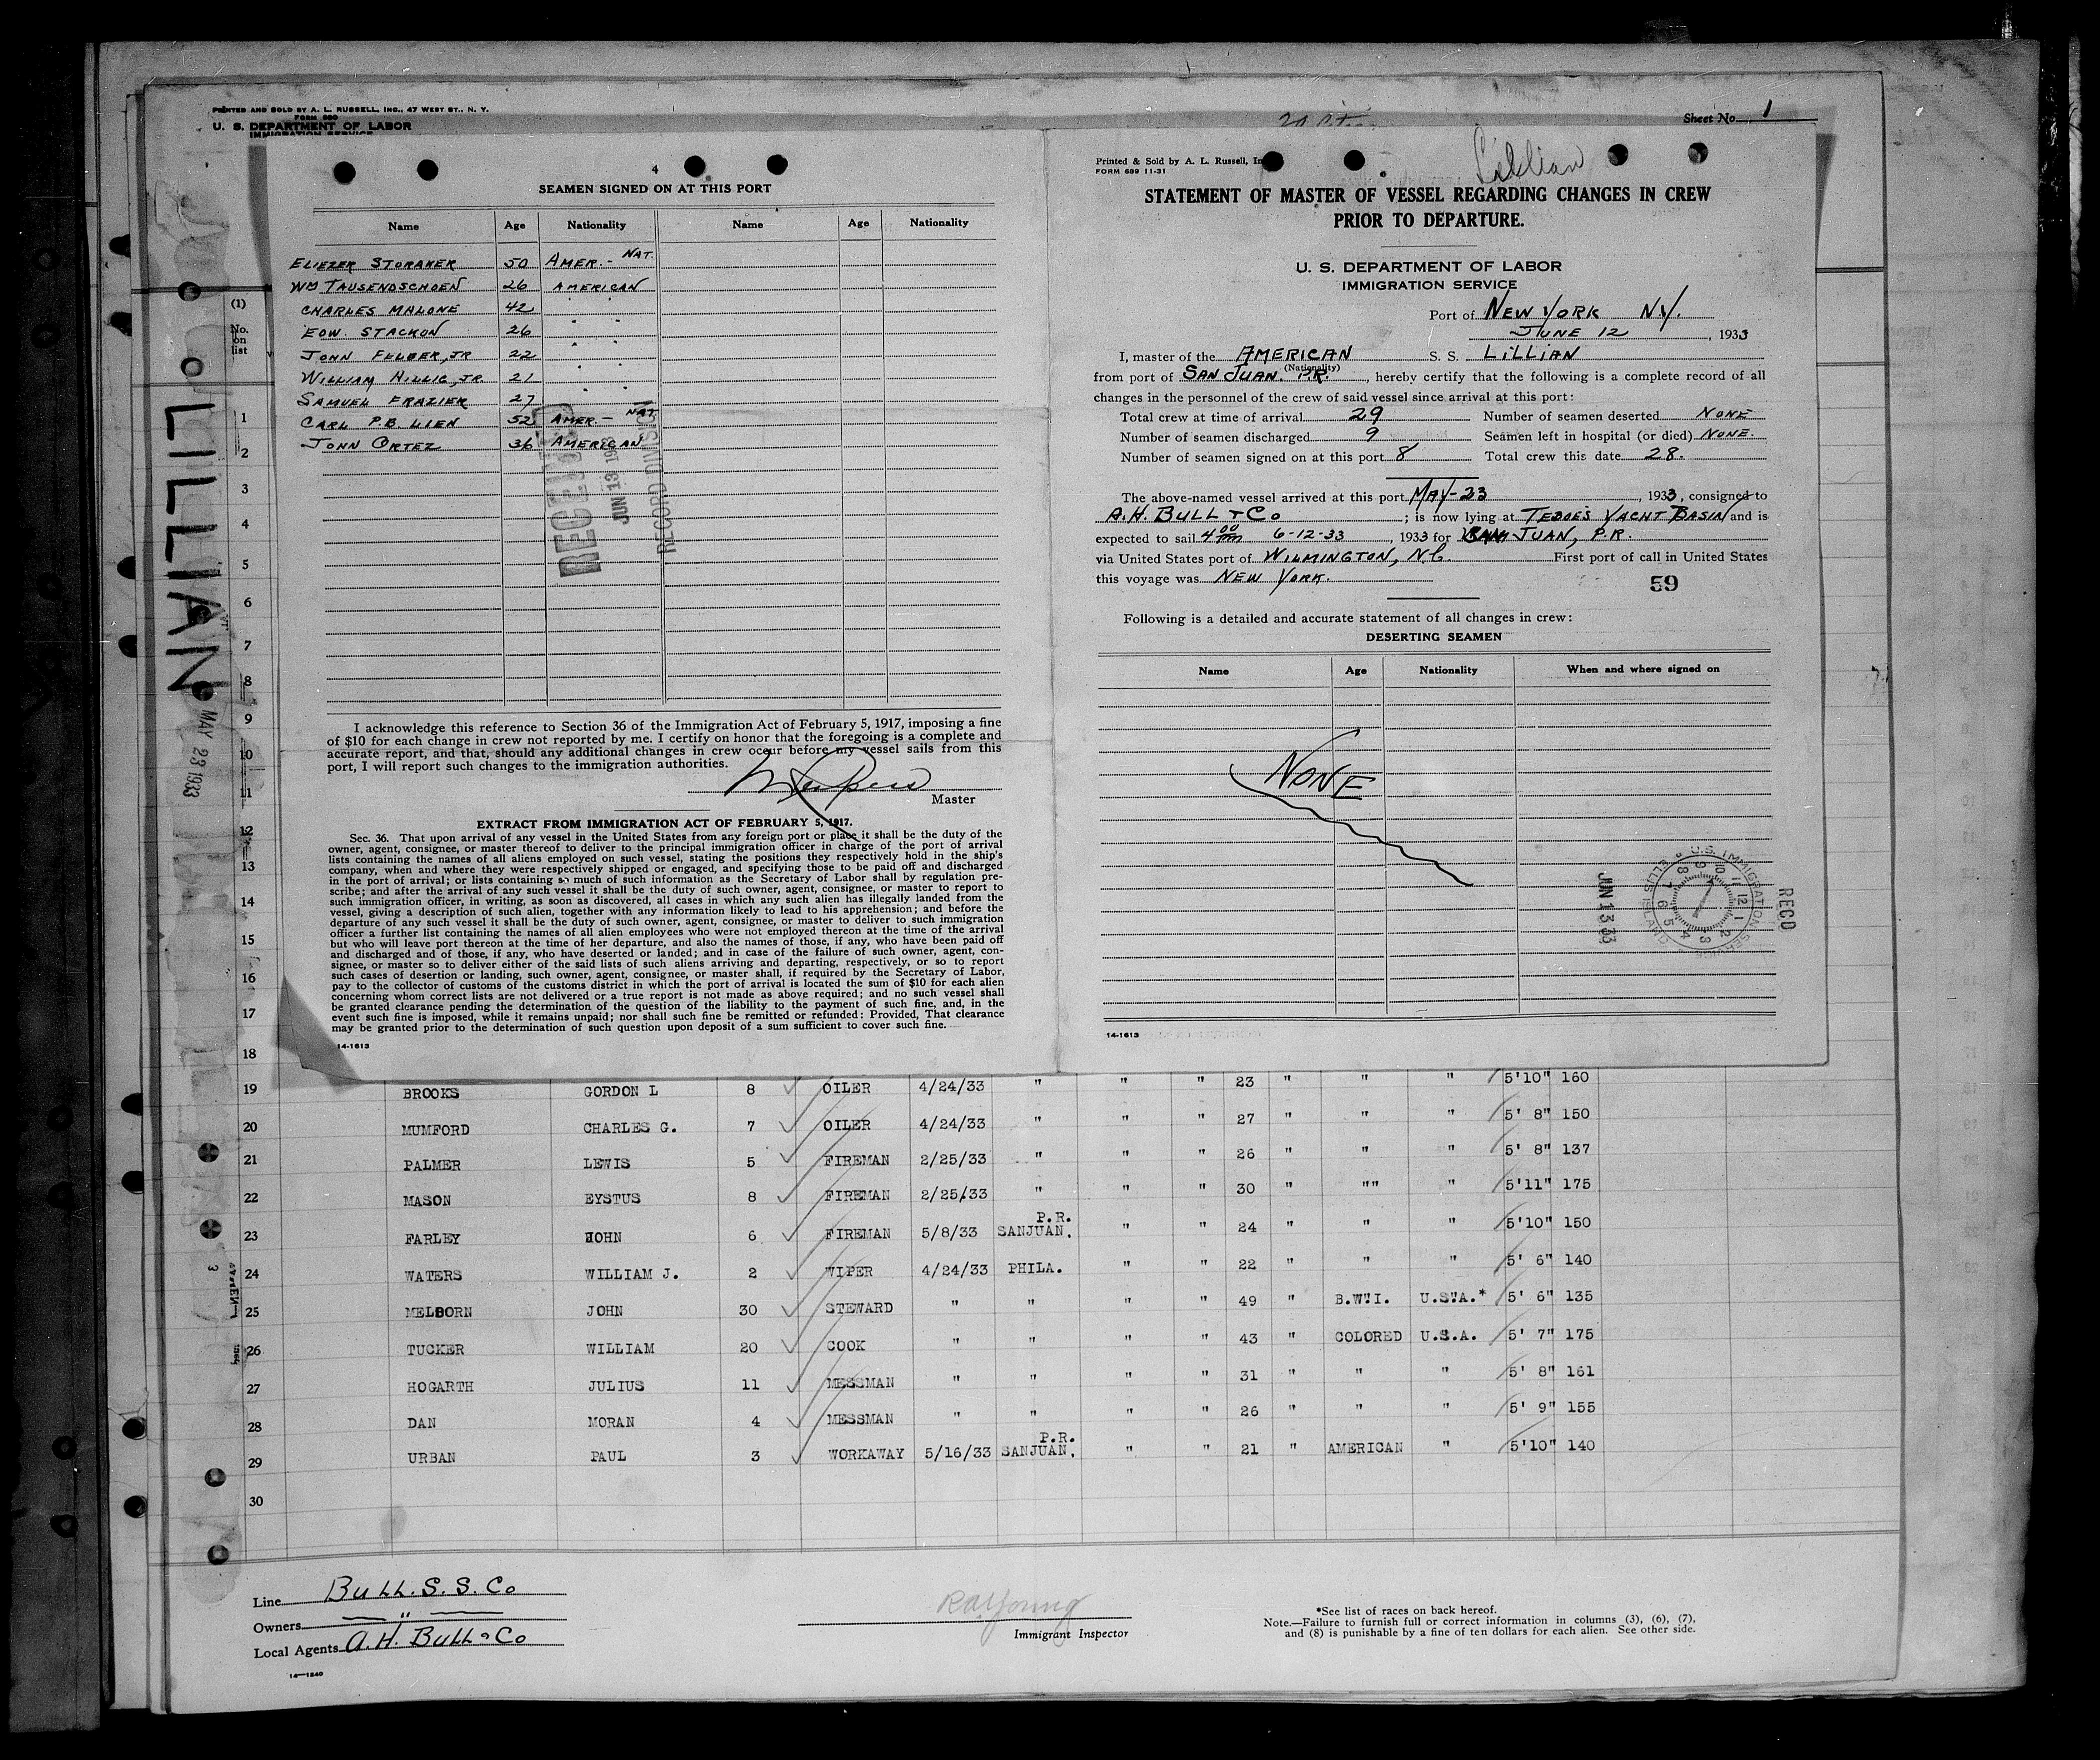 PRINTED AND SOLD BY A. L. RUSSELL, INC., 47 WEST ST., N. Y.
FORM 680
U. S. DEPARTMENT OF LABOR
IMMIGRATION SERVICE
Sheet No. 1
LILLIAN
MAY 23 1933
(1)
No.
on
list
1
2
3
4
5
6
7
8
9
10
11
12
13
14
15
16
17
18
4
SEAMEN SIGNED ON AT THIS PORT
Name Age Nationality Name Age Nationality
ELIEZER STORAKER 50 AMER. - NAT.
WM TAUSENDSCHOEN 26 AMERICAN
CHARLES MALONE 42 " "
EDW. STACKON 26 " "
JOHN FELBER, JR 22 " "
WILLIAM HILLIG, JR. 21 " "
SAMUEL FRAZIER 27 " "
CARL P.B. LIEN 52 AMER. - NAT.
JOHN ORTEZ 36 AMERICAN
RECEIVED
JUN 13 1933
RECORD DIVISION
I acknowledge this reference to Section 36 of the Immigration Act of February 5, 1917, imposing a fine
of $10 for each change in crew not reported by me. I certify on honor that the foregoing is a complete and
accurate report, and that, should any additional changes in crew occur before my vessel sails from this
port, I will report such changes to the immigration authorities.
Master
EXTRACT FROM IMMIGRATION ACT OF FEBRUARY 5, 1917.
Sec. 36. That upon arrival of any vessel in the United States from any foreign port or place it shall be the duty of the
owner, agent, consignee, or master thereof to deliver to the principal immigration officer in charge of the port of arrival
lists containing the names of all aliens employed on such vessel, stating the positions they respectively hold in the ship's
company, when and where they were respectively shipped or engaged, and specifying those to be paid off and discharged
in the port of arrival; or lists containing so much of such information as the Secretary of Labor shall by regulation pre-
scribe; and after the arrival of any such vessel it shall be the duty of such owner, agent, consignee, or master to report to
such immigration officer, in writing, as soon as discovered, all cases in which any such alien has illegally landed from the
vessel, giving a description of such alien, together with any information likely to lead to his apprehension; and before the
departure of any such vessel it shall be the duty of such owner, agent, consignee, or master to deliver to such immigration
officer a further list containing the names of all alien employees who were not employed thereon at the time of the arrival
but who will leave port thereon at the time of her departure, and also the names of those, if any, who have been paid off
and discharged and of those, if any, who have deserted or landed; and in case of the failure of such owner, agent, con-
signee, or master so to deliver either of the said lists of such aliens arriving and departing, respectively, or so to report
such cases of desertion or landing, such owner, agent, consignee, or master shall, if required by the Secretary of Labor,
pay to the collector of customs of the customs district in which the port of arrival is located the sum of $10 for each alien
concerning whom correct lists are not delivered or a true report is not made as above required; and no such vessel shall
be granted clearance pending the determination of the question of the liability to the payment of such fine, and, in the
event such fine is imposed, while it remains unpaid; nor shall such fine be remitted or refunded: Provided, That clearance
may be granted prior to the determination of such question upon deposit of a sum sufficient to cover such fine.
14-1613
Printed & Sold by A. L. Russell, In
FORM 689 11-31
Lillian
STATEMENT OF MASTER OF VESSEL REGARDING CHANGES IN CREW
PRIOR TO DEPARTURE.
U. S. DEPARTMENT OF LABOR
IMMIGRATION SERVICE
Port of NEW YORK N.Y.
JUNE 12, 1933
I, master of the AMERICAN S. S. LILLIAN
(Nationality)
from port of SAN JUAN. P.R., hereby certify that the following is a complete record of all
changes in the personnel of the crew of said vessel since arrival at this port:
Total crew at time of arrival 29 Number of seamen deserted NONE
Number of seamen discharged 9 Seamen left in hospital (or died) NONE.
Number of seamen signed on at this port 8 Total crew this date 28.
The above-named vessel arrived at this port MAY-23, 1933, consigned to
A.H. BULL & CO; is now lying at TEBOE'S YACHT BASIN and is
expected to sail 4 00 PM 6-12-33, 1933 for SAN JUAN, P.R.
via United States port of WILMINGTON, N.C. First port of call in United States
this voyage was NEW YORK.
59
Following is a detailed and accurate statement of all changes in crew:
DESERTING SEAMEN
Name Age Nationality When and where signed on
NONE
JUN 13 33
U.S. IMMIGRATION SERVICE ELLIS ISLAND
RECD
14-1613
19 BROOKS GORDON L 8 OILER 4/24/33 " " " 23 " " " 5'10" 160
20 MUMFORD CHARLES G. 7 OILER 4/24/33 " " " 27 " " " 5' 8" 150
21 PALMER LEWIS 5 FIREMAN 2/25/33 " " " 26 " " " 5' 8" 137
22 MASON EYSTUS 8 FIREMAN 2/25/33 " " " 30 " "" " 5'11" 175
23 FARLEY JOHN 6 FIREMAN 5/8/33 SANJUAN. P.R. " " 24 " " " 5'10" 150
24 WATERS WILLIAM J. 2 WIPER 4/24/33 PHILA. " " 22 " " " 5' 6" 140
25 MELBORN JOHN 30 STEWARD " " " " 49 " B.W.I. U.S.A.* 5' 6" 135
26 TUCKER WILLIAM 20 COOK " " " " 43 " COLORED U.S.A. 5' 7" 175
27 HOGARTH JULIUS 11 MESSMAN " " " " 31 " " " 5' 8" 161
28 DAN MORAN 4 MESSMAN " " " " 26 " " " 5' 9" 155
29 URBAN PAUL 3 WORKAWAY 5/16/33 SANJUAN. P.R. " " 21 " AMERICAN " 5'10" 140
30
Line Bull. S. S. Co
Owners "
Local Agents A. H. Bull & Co
14-1240
Immigrant Inspector
*See list of races on back hereof.
Note.—Failure to furnish full or correct information in columns (3), (6), (7),
and (8) is punishable by a fine of ten dollars for each alien. See other side.